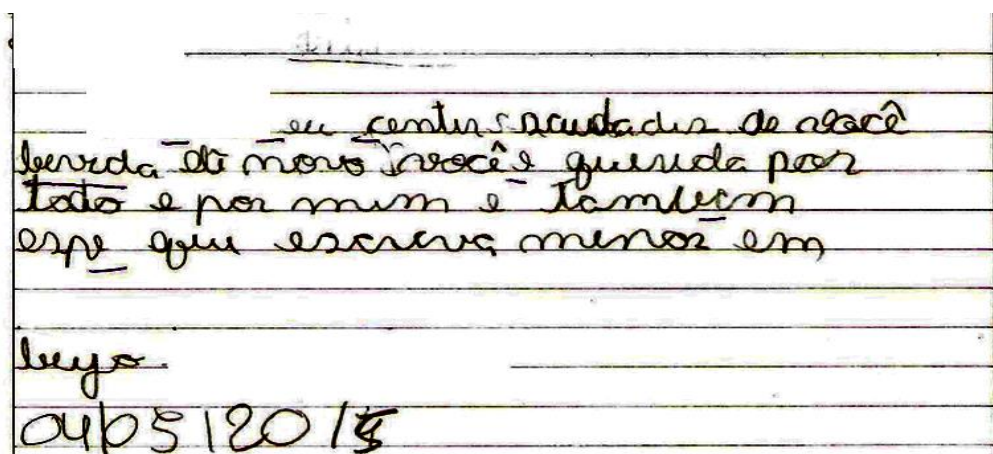 eu centir saudades de você
benida de novo você e querida por
todo e por mim e também
espe que escreva menos em
beijo.
04/05/2015